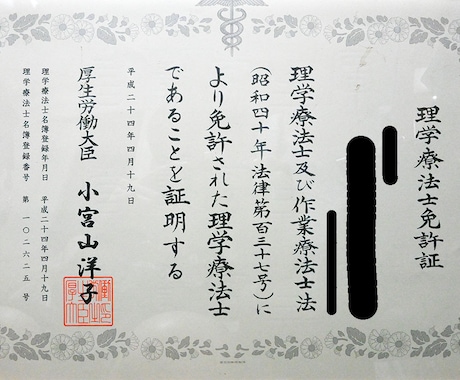 理学療法士免許証
理学療法士及び作業療法士法
(昭和四十年法律第百三十七号)に
より免許された理学療法士
であることを証明する
平成二十四年四月十九日
厚生労働大臣 小宮山洋子
理学療法士名簿登録年月日 平成二十四年四月十九日
理学療法士名簿登録番号 第一〇二六二五号